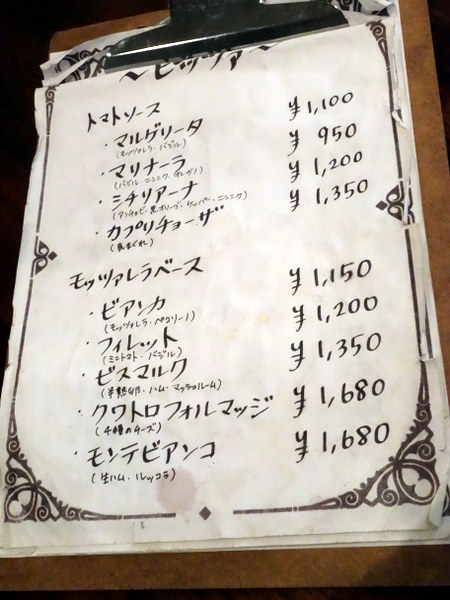 ～ピッツァ～
トマトソース
・マルゲリータ ¥1,100
(モッツァレラ・バジル)
・マリナーラ ¥950
(バジル・ニンニク・オレガノ)
・シチリアーナ ¥1,200
(アンチョビ・黒オリーブ・ケッパー・ニンニク)
・カプリチョーザ ¥1,350
(気まぐれ)
モッツァレラベース
・ビアンカ ¥1,150
(モッツァレラ・ペコリーノ)
・フィレット ¥1,200
(ミニトマト・バジル)
・ビスマルク ¥1,350
(半熟卵・ハム・マッシュルーム)
・クワトロフォルマッジ ¥1,680
(4種のチーズ)
・モンテビアンコ ¥1,680
(生ハム・ルッコラ)